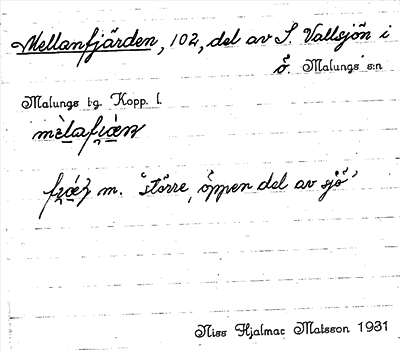 Mellanfjärden, 102, del av S. Vallsjön i
ö. Malungs s:n
Malungs t:g. Kopp. l.
mèlafiæṇ
m. "större, öppen del av sjö"
Niss Hjalmar Matsson 1931